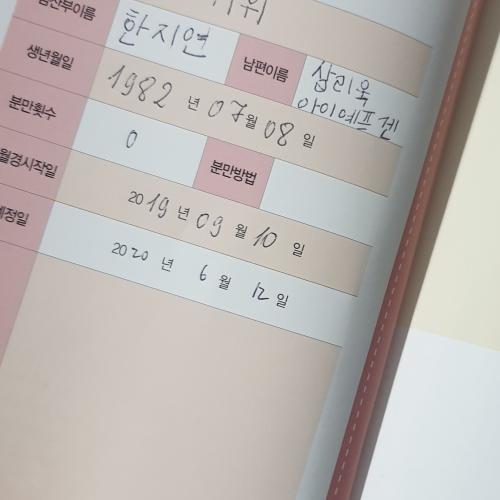 임산부이름 한지연 남편이름 삼리욱
아이예프젠
생년월일 1982 년 07 월 08 일
분만횟수 0 분만방법
월경시작일 2019 년 09 월 10 일
예정일 2020 년 6 월 12 일